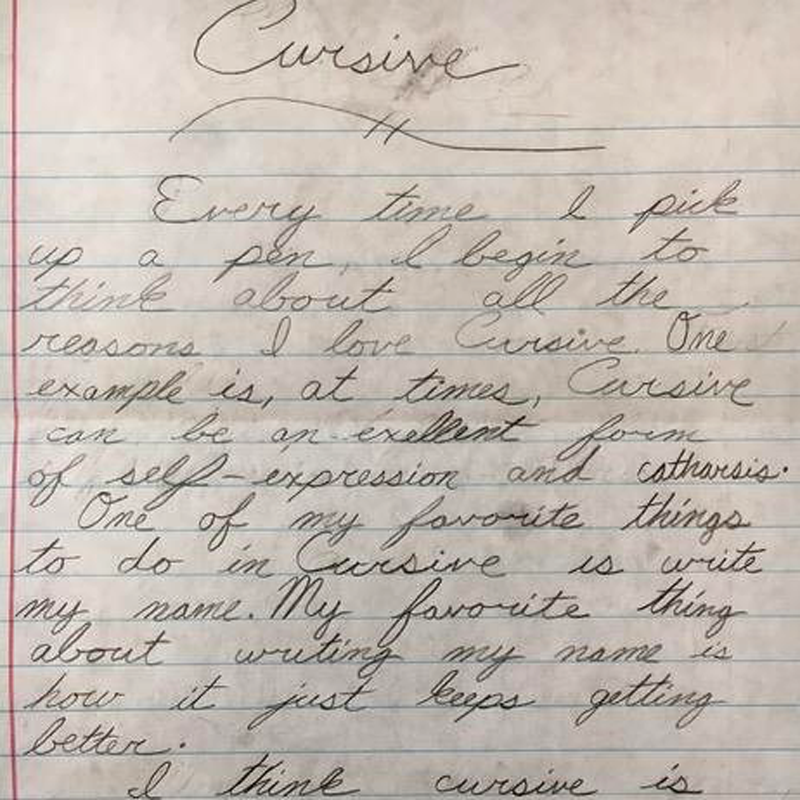 Cursive
Every time I pick
up a pen, I begin to
think about all the
reasons I love Cursive. One
example is, at times, Cursive
can be an exellent form
of self-expression and catharsis.
One of my favorite things
to do in Cursive is write
my name. My favorite thing
about writing my name is
how it just keeps getting
better.
I think cursive is